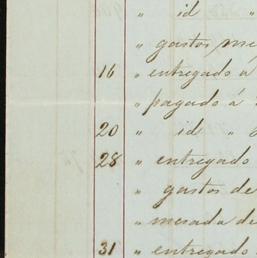 " id "
" gastos me
16 " entregado á
" pagado á
20 " id "
28 " entregado
" gastos de
" mesada de
31 " entregado